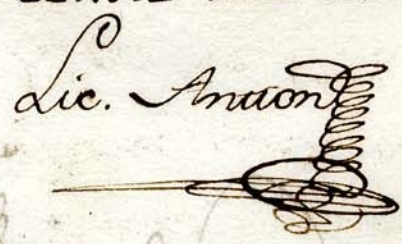 Lic. Antton